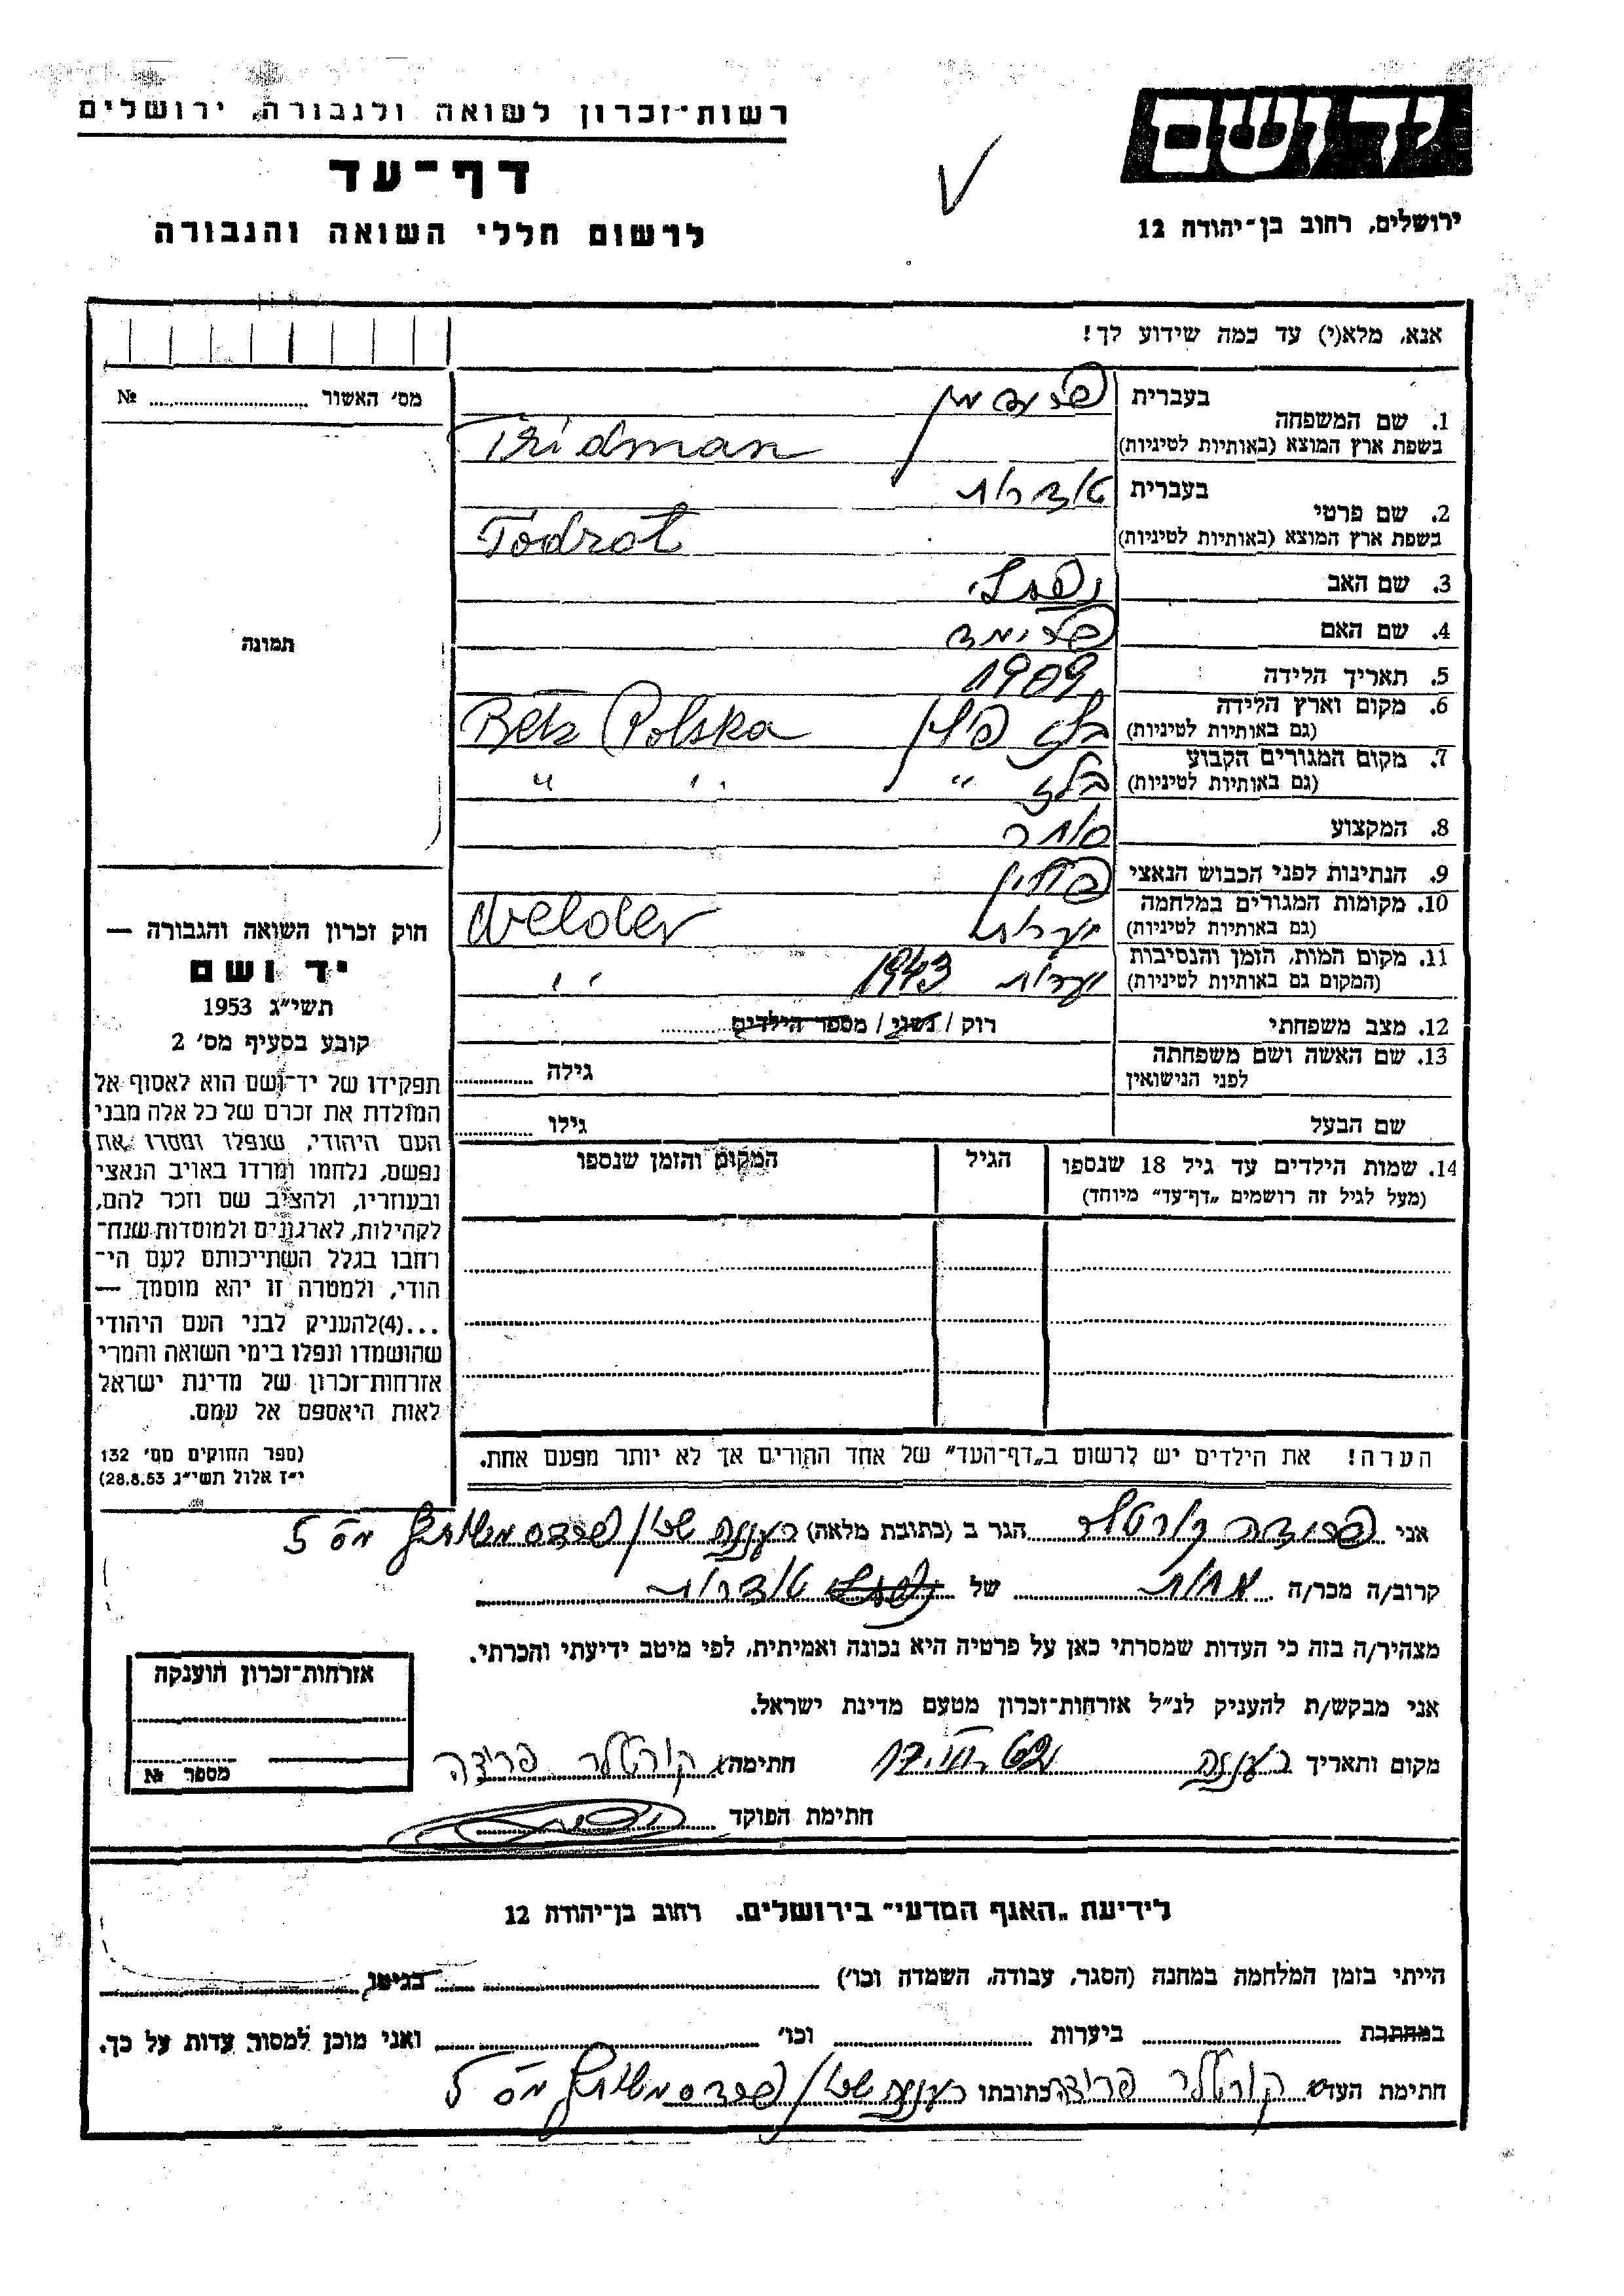 יד ושם
ירושלים, רחוב בן־יהודה 12
רשות־זכרון לשואה ולגבורה, ירושלים
דף־עד
לרשום חללי השואה והגבורה
אנא, מלא(י) עד כמה שידוע לך!
מס׳ האשור № 
תמונה
חוק זכרון השואה והגבורה —
יד ושם
תשי״ג 1953
קובע בסעיף מס׳ 2
תפקידו של יד־ושם הוא לאסוף אל
המולדת את זכרם של כל אלה מבני
העם היהודי, שנפלו ומסרו את
נפשם, נלחמו ומרדו באויב הנאצי
ובעוזריו, ולהציב שם וזכר להם,
לקהילות, לארגונים ולמוסדות שנח־
רחבו בגלל השתייכותם לעם הי־
הודי, ולמטרה זו יהא מוסמך —
...(4)להעניק לבני העם היהודי
שהושמדו ונפלו בימי השואה והמרי
אזרחות־זכרון של מדינת ישראל
לאות היאספם אל עמם.
(ספר החוקים מס׳ 132
י״ז אלול תשי״ג 28.8.53)
1. שם המשפחה
בעברית פרידמן
בשפת ארץ המוצא (באותיות לטיניות) Fridman
2. שם פרטי
בעברית טודרות
בשפת ארץ המוצא (באותיות לטיניות) Todrot
3. שם האב נפתלי
4. שם האם
5. תאריך הלידה 1909
6. מקום וארץ הלידה בלז פולין
(גם באותיות לטיניות) Bełz Polska
7. מקום המגורים הקבוע בלז ״
(גם באותיות לטיניות) ״ ״
8. המקצוע סוחר
9. הנתינות לפני הכבוש הנאצי פולין
10. מקומות המגורים במלחמה
(גם באותיות לטיניות)
11. מקום המות, הזמן והנסיבות 1943
(המקום גם באותיות לטיניות) ״
12. מצב משפחתי רוק / נשוי / מספר הילדים
13. שם האשה ושם משפחתה גילה
לפני הנישואין
שם הבעל גילו
14. שמות הילדים עד גיל 18 שנספו הגיל המקום והזמן שנספו
(מעל לגיל זה רושמים „דף־עד״ מיוחד)
הערה! את הילדים יש לרשום ב„דף־העד״ של אחד ההורים אך לא יותר מפעם אחת.
אני פרידה קורטלר הגר ב (כתובת מלאה) רעננה מס 5
קרוב/ה מכר/ה אחות של טודרות
מצהיר/ה בזה כי העדות שמסרתי כאן על פרטיה היא נכונה ואמיתית, לפי מיטב ידיעתי והכרתי.
אני מבקש/ת להעניק לנ״ל אזרחות־זכרון מטעם מדינת ישראל.
מקום ותאריך רעננה חתימה קורטלר פרידה
חתימת הפוקד
אזרחות־זכרון הוענקה
מספר №
לידיעת „האגף המדעי״ בירושלים. רחוב בן־יהודה 12
הייתי בזמן המלחמה במחנה (הסגר, עבודה, השמדה וכו׳) בגיטו
במחתרת ביערות וכו׳ ואני מוכן למסור עדות על כך.
חתימת העד קורטלר פרידה כתובתו רעננה מס 5